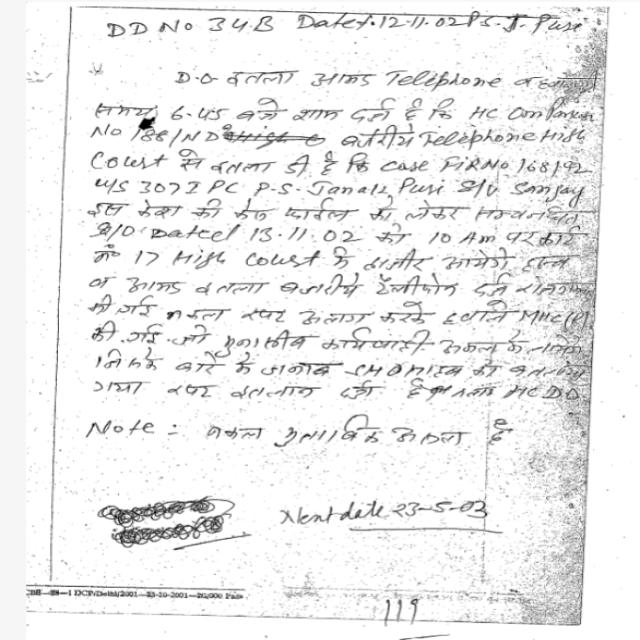 DD No 34B Dated. 12.11.02 PS J. Puri
D.O इतला आमद Telephone व
समय 6.45 बजे शाम दर्ज है कि HC
No 188/ND बजरीये Telephone High
Court से इतला दी है कि case FIR No 168/92
u/s 307 IPC P.S. Janak Puri S/V Sanjay
इस केस की केस फाईल को लेकर
I/O Dated 13.11.02 को 10 Am पर कोर्ट
नं 17 High Court में हाजीर आयेगे
आमद इतला बजरीये टैलीफोन दर्ज
की गई नकल रपट अलग करके हवाले MHC(R)
की गई. जो मुनासीब कार्यवाही अमल में लायेंगे
जिसके बारे में जनाब SHO साहब को
गया रपट दर्ज है HC DO
Note : नकल मुताबिक असल है
Next date 23-5-03
—1 DCP/Delhi/2001—23-10-2001—20,000 Pads
119